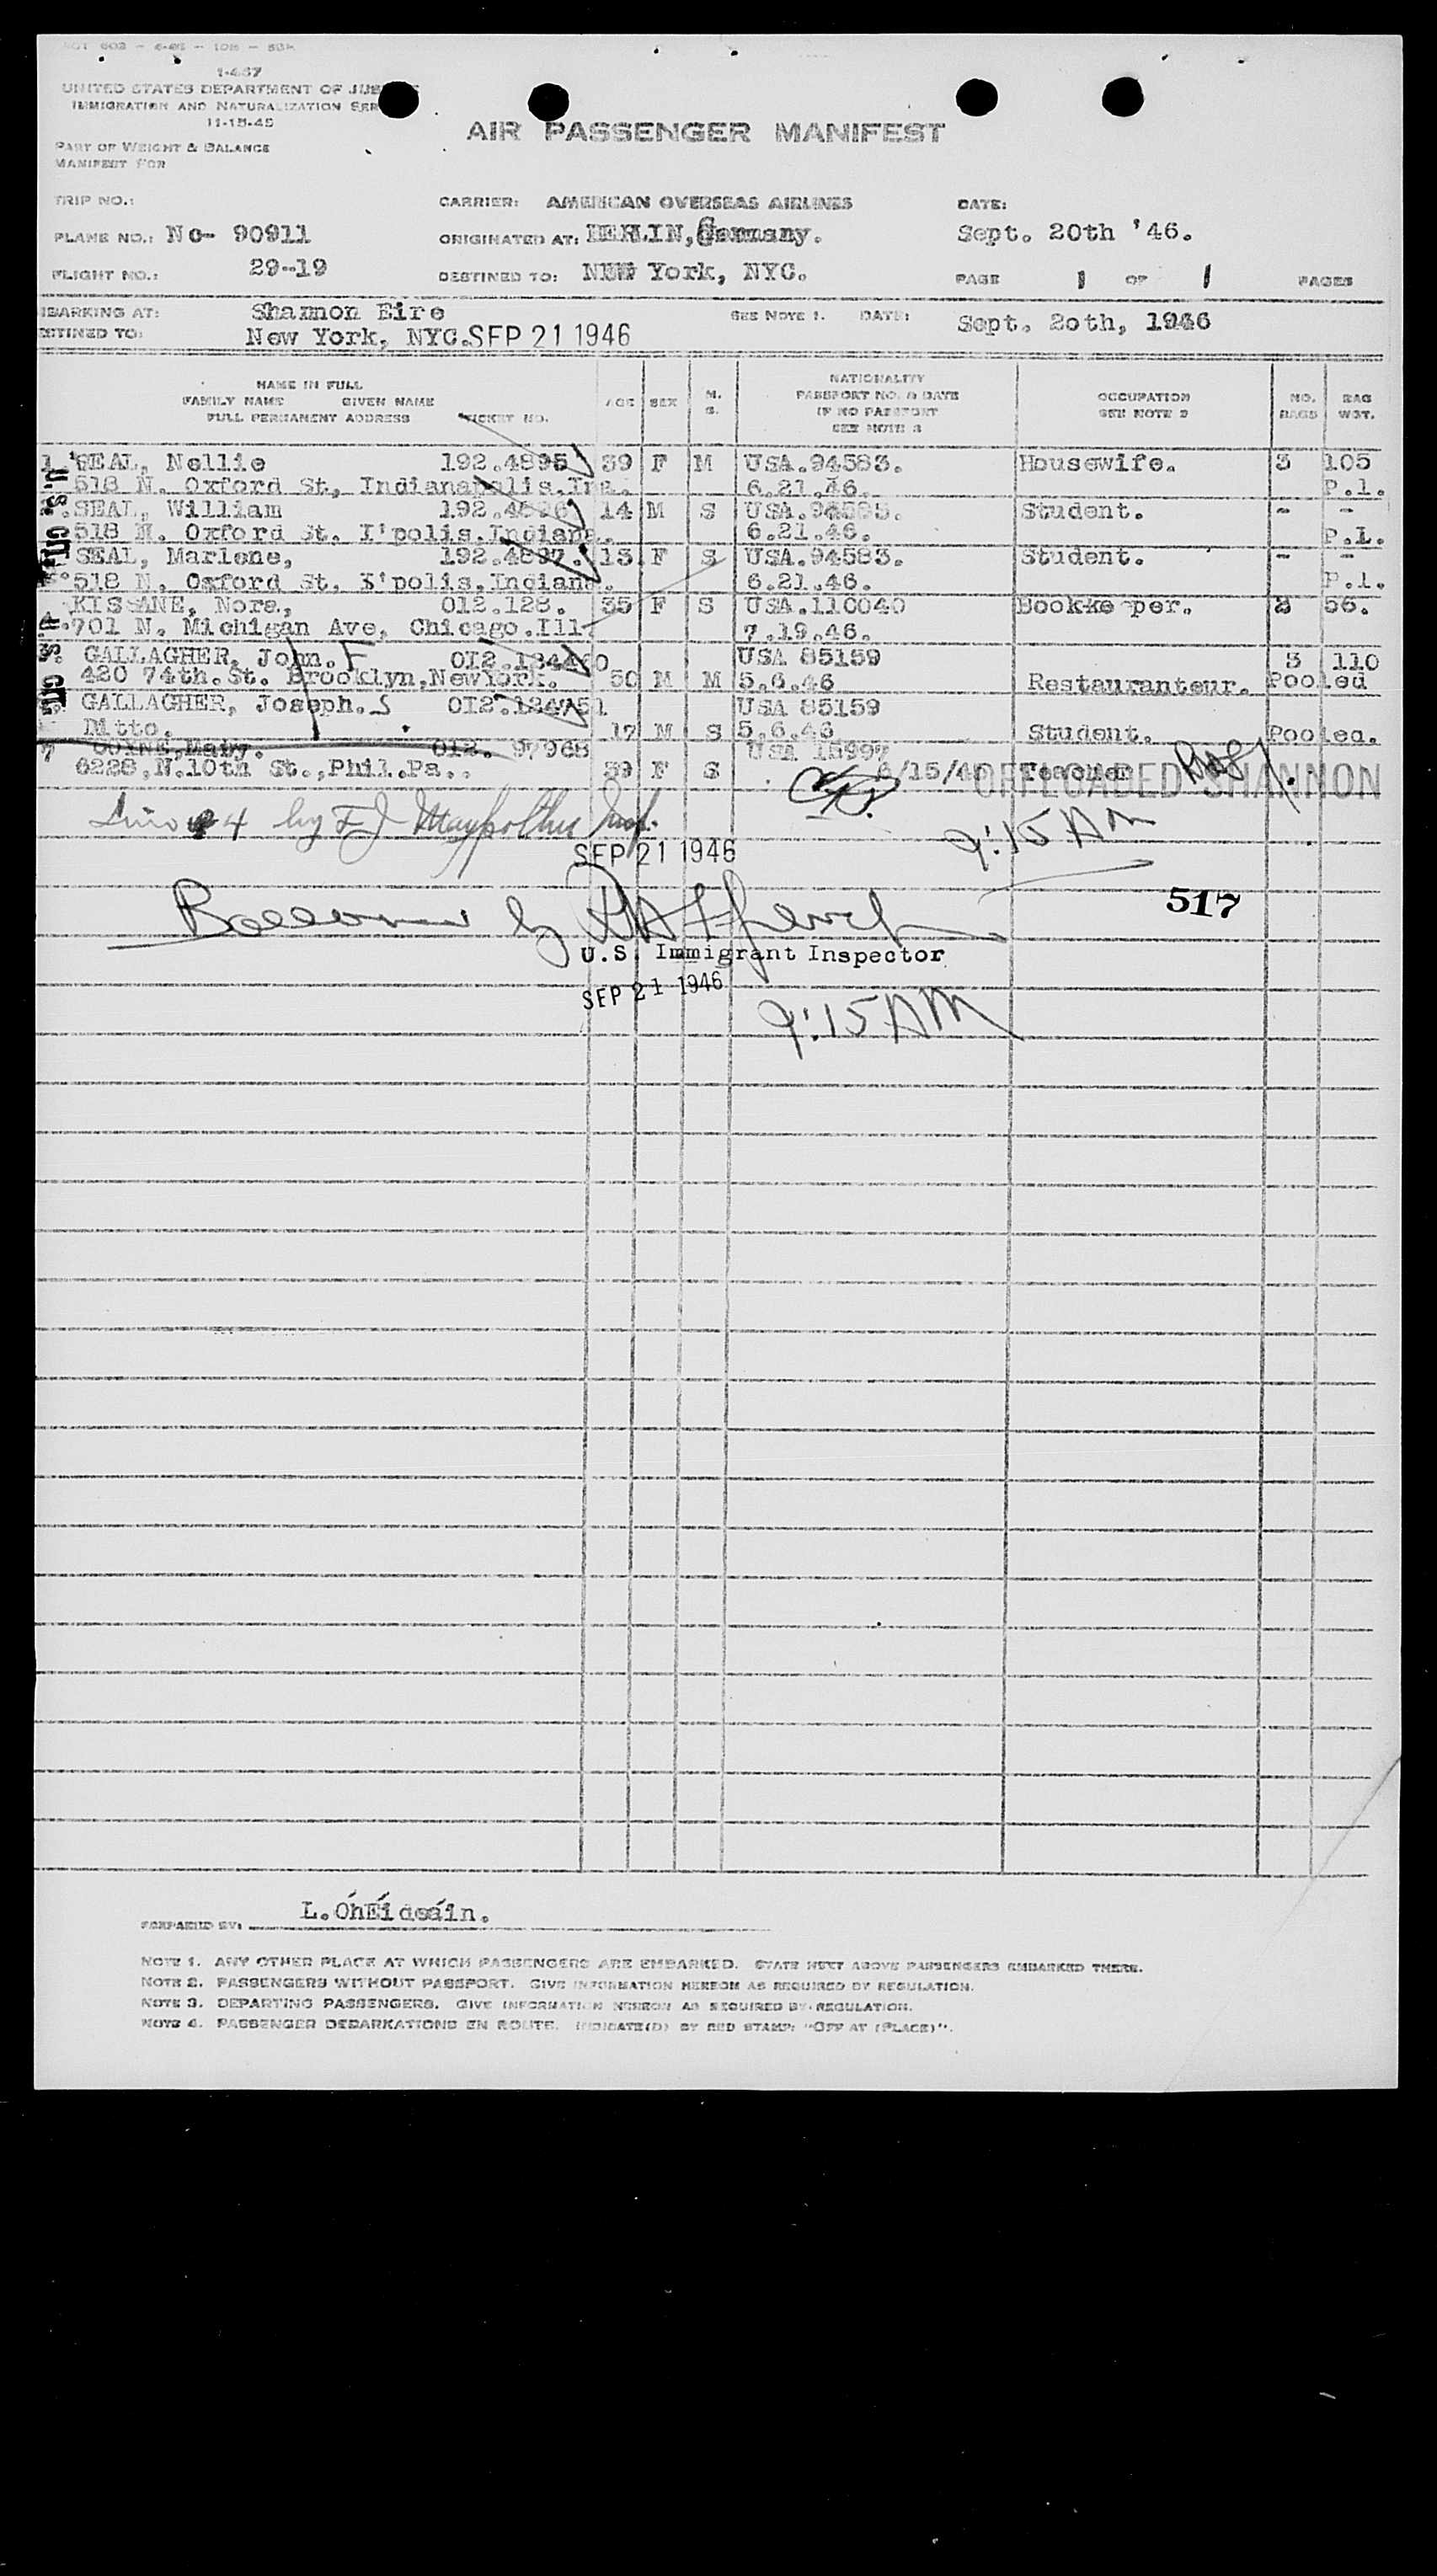 1-467
UNITED STATES DEPARTMENT OF
IMMIGRATION AND NATURALIZATION SER
11-15-45
AIR PASSENGER MANIFEST
PART OF WEIGHT & BALANCE
MANIFEST FOR
TRIP NO.:
CARRIER: AMERICAN OVERSEAS AIRLINES
DATE:
PLANE NO.: NC- 90911
ORIGINATED AT: BERLIN, Germany.
Sept. 20th '46.
FLIGHT NO.: 29-19
DESTINED TO: NEW York, NYC.
PAGE 1 OF 1 PAGES
MBARKING AT: Shannon Eire
SEE NOTE 1. DATE: Sept. 20th, 1946
ESTINED TO: New York, NYC. SEP 21 1946
NAME IN FULL
FAMILY NAME GIVEN NAME
FULL PERMANENT ADDRESS TICKET NO.
AGE
SEX
M.
S.
NATIONALITY
PASSPORT NO. & DATE
IF NO PASSPORT
SEE NOTE 2
OCCUPATION
SEE NOTE 3
NO.
BAGS
BAG
WGT.
1 SEAL, Nellie 192.4895 39 F M USA.94583. Housewife. 3 105
518 N. Oxford St, Indianapolis.Ind. 6.21.46. P.l.
SEAL, William 192.4896 14 M S USA.94583. Student. - -
518 N. Oxford St. I'polis.Indiana. 6.21.46. P.L.
SEAL, Marlene, 192.4897. 13 F S USA.94583. Student. - -
518 N. Oxford St. I'polis.Indiana. 6.21.46. P.l.
KISSANE, Nora, 012.128. 35 F S USA.110040 Bookkeeper. 2 56.
701 N. Michigan Ave, Chicago.Ill. 7.19.46.
GALLAGHER, John. F USA 85159 3 110
420 74th.St. Brooklyn,NewYork. 50 M M 5.6.46 Restauranteur. Pooled
GALLAGHER, Joseph. S USA 85159
Ditto. 17 M S 5.6.46 Student. Pooled.
7 COYNE,Mary. 012. 97968 USA
6228,N.10th St.,Phil.Pa.. 39 F S Teacher
OFFLOADED SHANNON
4 by F J
SEP 21 1946
9:15 AM
517
by
U.S. Immigrant Inspector
SEP 21 1946
9:15 AM
PREPARED BY: L.ÓhÉideáin.
NOTE 1. ANY OTHER PLACE AT WHICH PASSENGERS ARE EMBARKED. STATE NEXT ABOVE PASSENGERS EMBARKED THERE.
NOTE 2. PASSENGERS WITHOUT PASSPORT. GIVE INFORMATION HEREON AS REQUIRED BY REGULATION.
NOTE 3. DEPARTING PASSENGERS. GIVE INFORMATION HEREON AS REQUIRED BY REGULATION.
NOTE 4. PASSENGER DEBARKATIONS EN ROUTE. INDICATE(D) BY RED STAMP: "OFF AT (PLACE)".